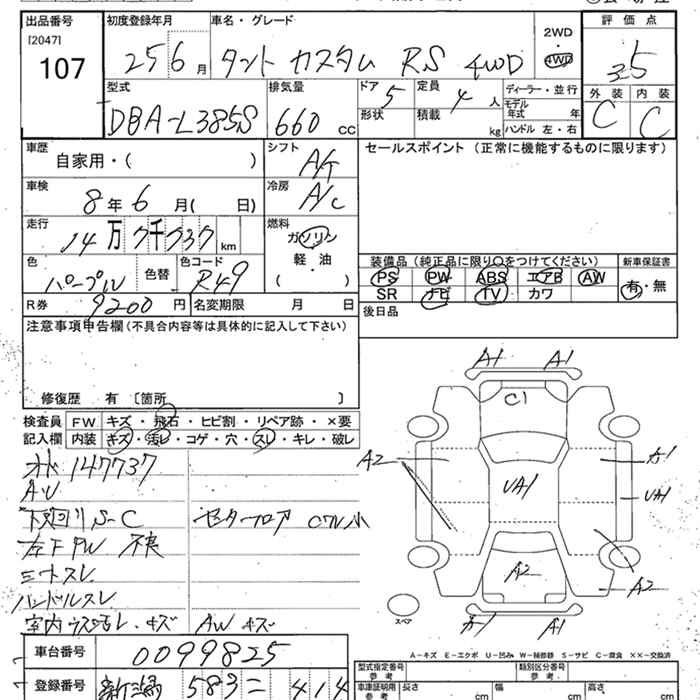 出品番号
[2047]
107
初度登録年月
25 6月
車名・グレード
タント カスタム RS 4WD
2WD
4WD
評価点
3.5
外装 内装
C C
型式
DBA-L385S
排気量
660 cc
ドア
5
定員
4人
形状
積載
kg
ディーラー・並行
モデル年式 年
ハンドル 左・右
車歴
自家用・( )
シフト
A/T
車検
8年 6月( 日)
冷房
A/C
セールスポイント (正常に機能するものに限ります)
走行
14万7千737km
燃料
ガソリン
軽油
・
( )
色
パープル
色替
色コード
R49
装備品(純正品に限り○をつけてください)
新車保証書
PS PW ABS エアB AW
SR ナビ TV カワ
有・無
R券 9200円
名変期限 月 日
後日品
注意事項申告欄(不具合内容等は具体的に記入して下さい)
修復歴 有 〔箇所 〕
検査員記入欄
FW キズ・飛石・ヒビ割・リペア跡・×要
内装 キズ・汚レ・コゲ・穴・スレ・キレ・破レ
147737
下廻り S-C
センターフロア
左下 不良
シートスレ
ハンドルスレ
室内 キズ AWキズ
A1 A1
C1
A2
UA1
A1
UA1
A2
A2
A1 A1
スペア
A-キズ E-エクボ U-凹み W-補修跡 S-サビ C-腐食 ××-交換済
車台番号
0099825
登録番号
新潟 583 ニ 414
型式指定番号 参考
類別区分番号 参考
車庫証明用 参考
長さ cm
幅 cm
高さ cm